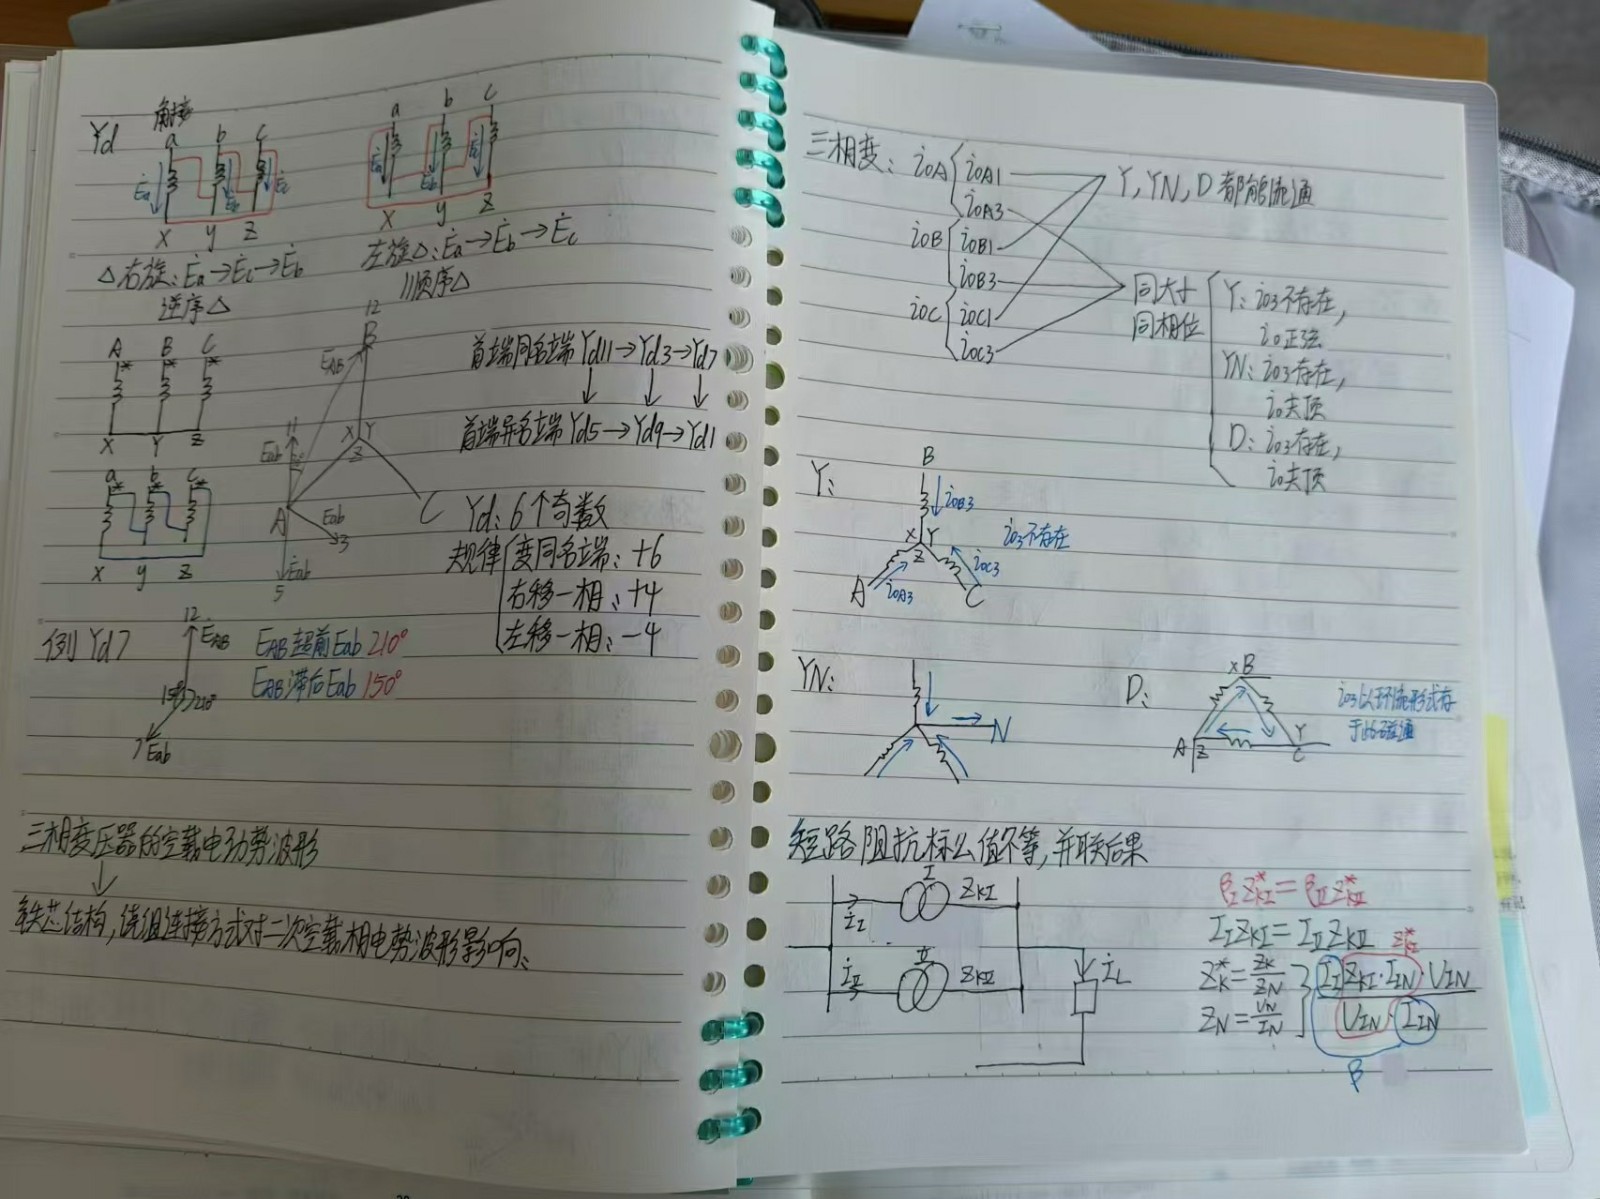 Yd 角接
a b c
Ėa Ėb Ėc
X y Z
△右旋: Ėa→Ėc→Ėb
逆序△
a b c
Ėa Ėb Ėc
X y Z
左旋△: Ėa→Ėb→Ėc
顺序△
A B C
* * *
X Y Z
a b c
* * *
X y Z
12
B
EAB
11
Eab
X Y
Z
A
C
Eab
3
Eab
5
首端同名端 Yd11→Yd3→Yd7
↓ ↓ ↓
首端异名端 Yd5→Yd9→Yd1
Yd: 6个奇数
规律 变同名端: +6
右移一相: +4
左移一相: -4
例 Yd7
12
EAB
150° 210°
7 Eab
EAB超前Eab 210°
EAB滞后Eab 150°
三相变压器的空载电动势波形
↓
铁芯结构, 绕组连接方式对二次空载相电势波形影响、
三相变: i0A i0A1
i0A3
i0B i0B1
i0B3
i0C i0C1
i0C3
Y, YN, D都能流通
同大小
同相位
Y: i03不存在,
i0正弦
YN: i03存在,
i0尖顶
D: i03存在,
i0尖顶
Y:
B
i0B3
X Y
Z
i03不存在
A i0A3
i0C3
C
YN:
N
D:
X B
A Z
Y
C
i03以环流形式存
短路阻抗标幺值不等, 并联后果
İI I ZKI
İII II ZKII
İL
βI Z*KI = βII Z*KII
II ZKI = III ZKII
Z*KI
Z*K = ZK/ZN
ZN = UN/IN
II ZKI·IIN·UIN
UIN·IIN
β